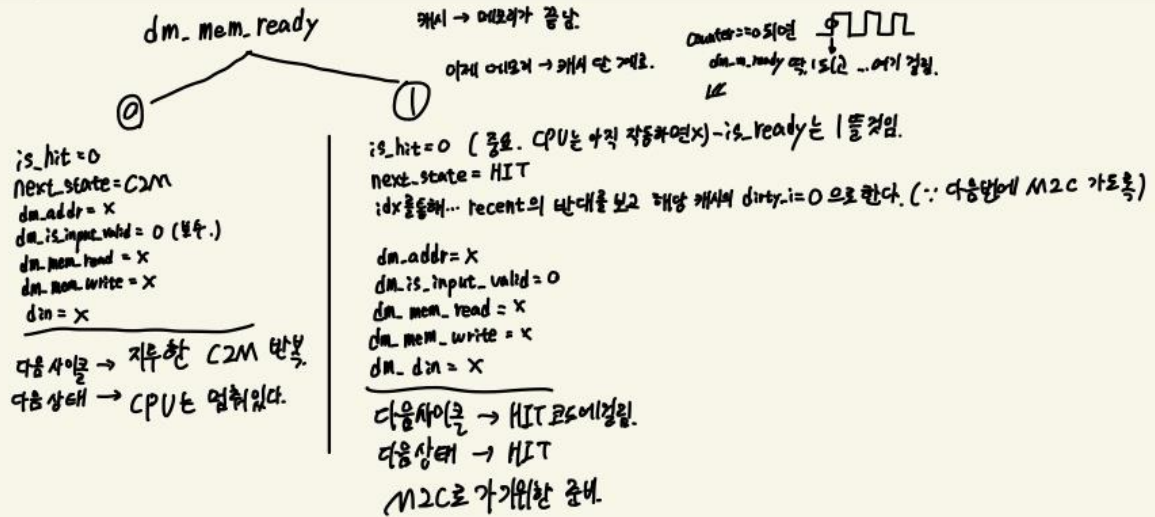 dm_mem_ready
캐시 → 메모리가 끝남.
이제 메모리 → 캐시 단계로.
counter==0 되면
dm_m_ready 딱 1 되고 ... 여기 걸림.
0
is_hit=0
next_state=C2M
dm_addr = x
dm_is_input_valid = 0 (필수.)
dm_mem_read = x
dm_mem_write = x
din = x
다음사이클 → 지루한 C2M 반복.
다음상태 → CPU는 멈춰있다.
1
is_hit=0 (중요. CPU는 아직 작동하면x)-is_ready는 1 뜰것임.
next_state = HIT
idx를통해... recent의 반대를 보고 해당 캐시의 dirty_i=0 으로 한다. (∵ 다음번에 M2C 가도록)
dm_addr= x
dm_is_input_valid = 0
dm_mem_read = x
dm_mem_write = x
dm_din = x
다음사이클 → HIT코드에걸림.
다음상태 → HIT
M2C로 가기위한 준비.